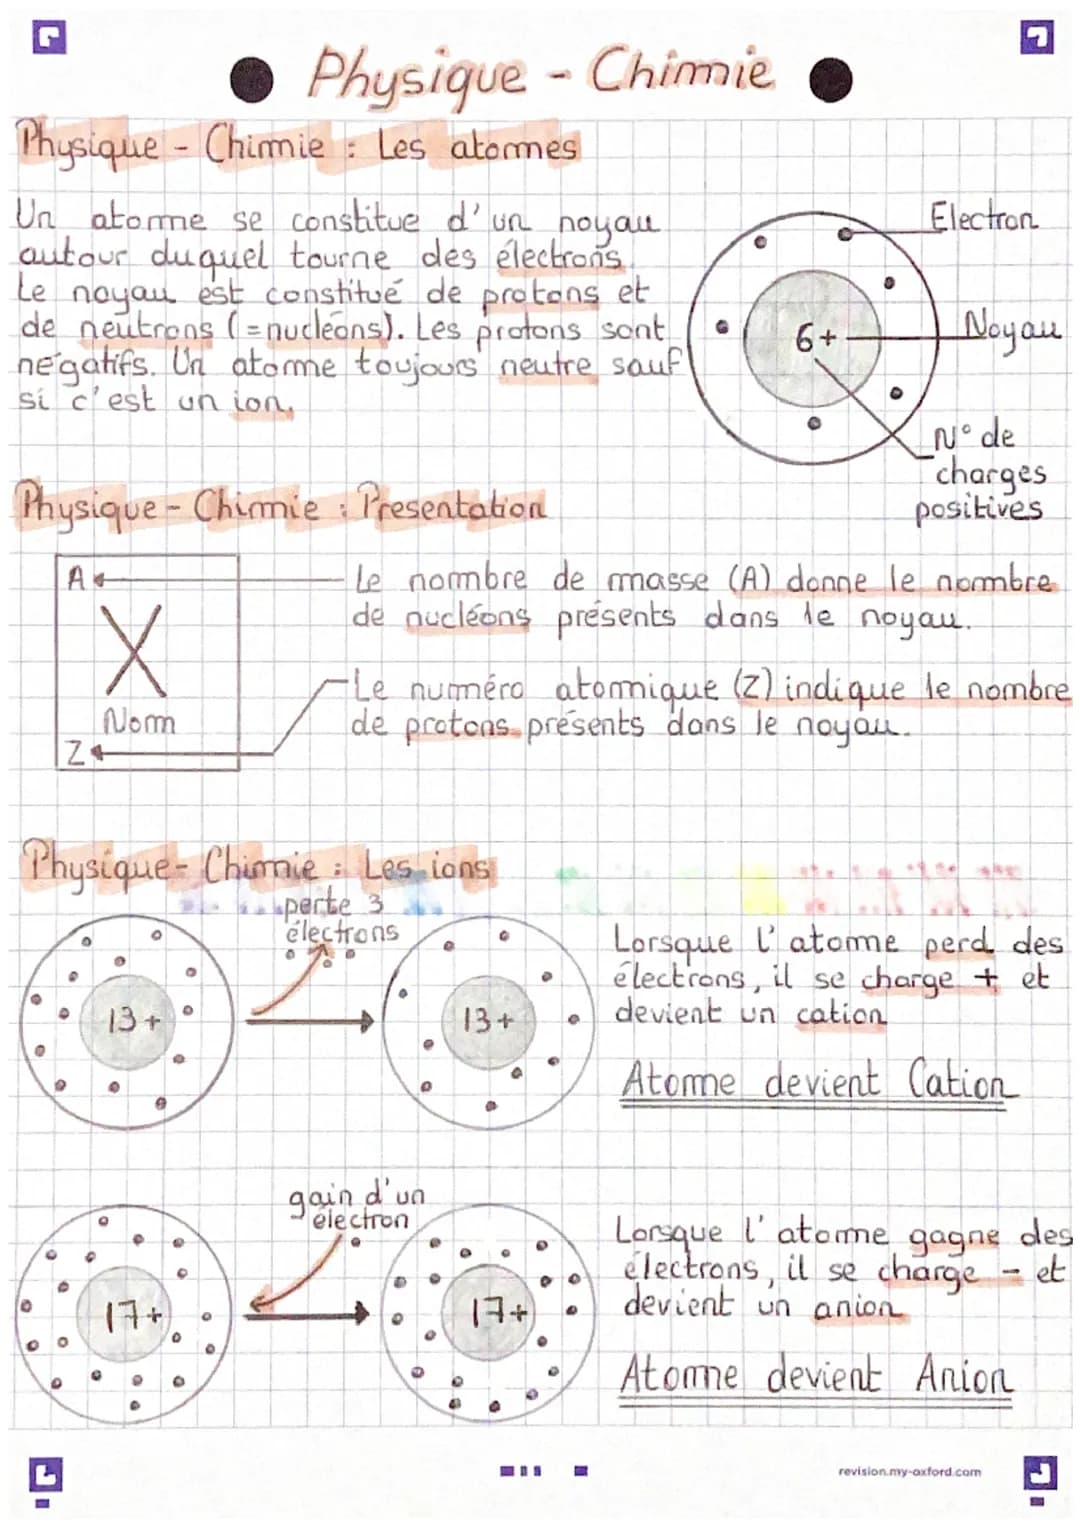 Physique - Chimie
Physique - Chimie : Les atomes
Un atome se constitue d'un noyau
autour duquel tourne des électrons.
Le noyau est constitué de protons et
de neutrons (=nucléons). Les protons sont
négatifs. Un atome toujours neutre sauf
si c'est un ion.
Electron
6+
Noyau
N° de
charges
positives
Physique - Chimie : Presentation
A
X
Nom
Z
Le nombre de masse (A) donne le nombre
de nucléons présents dans le noyau.
Le numéro atomique (Z) indique le nombre
de protons présents dans le noyau.
Physique - Chimie : Les ions
perte 3
électrons
13+
13+
Lorsque l'atome perd des
électrons, il se charge + et
devient un cation
Atome devient Cation
gain d'un
électron
17+
17+
Lorsque l'atome gagne des
électrons, il se charge - et
devient un anion
Atome devient Anion
revision.my-oxford.com